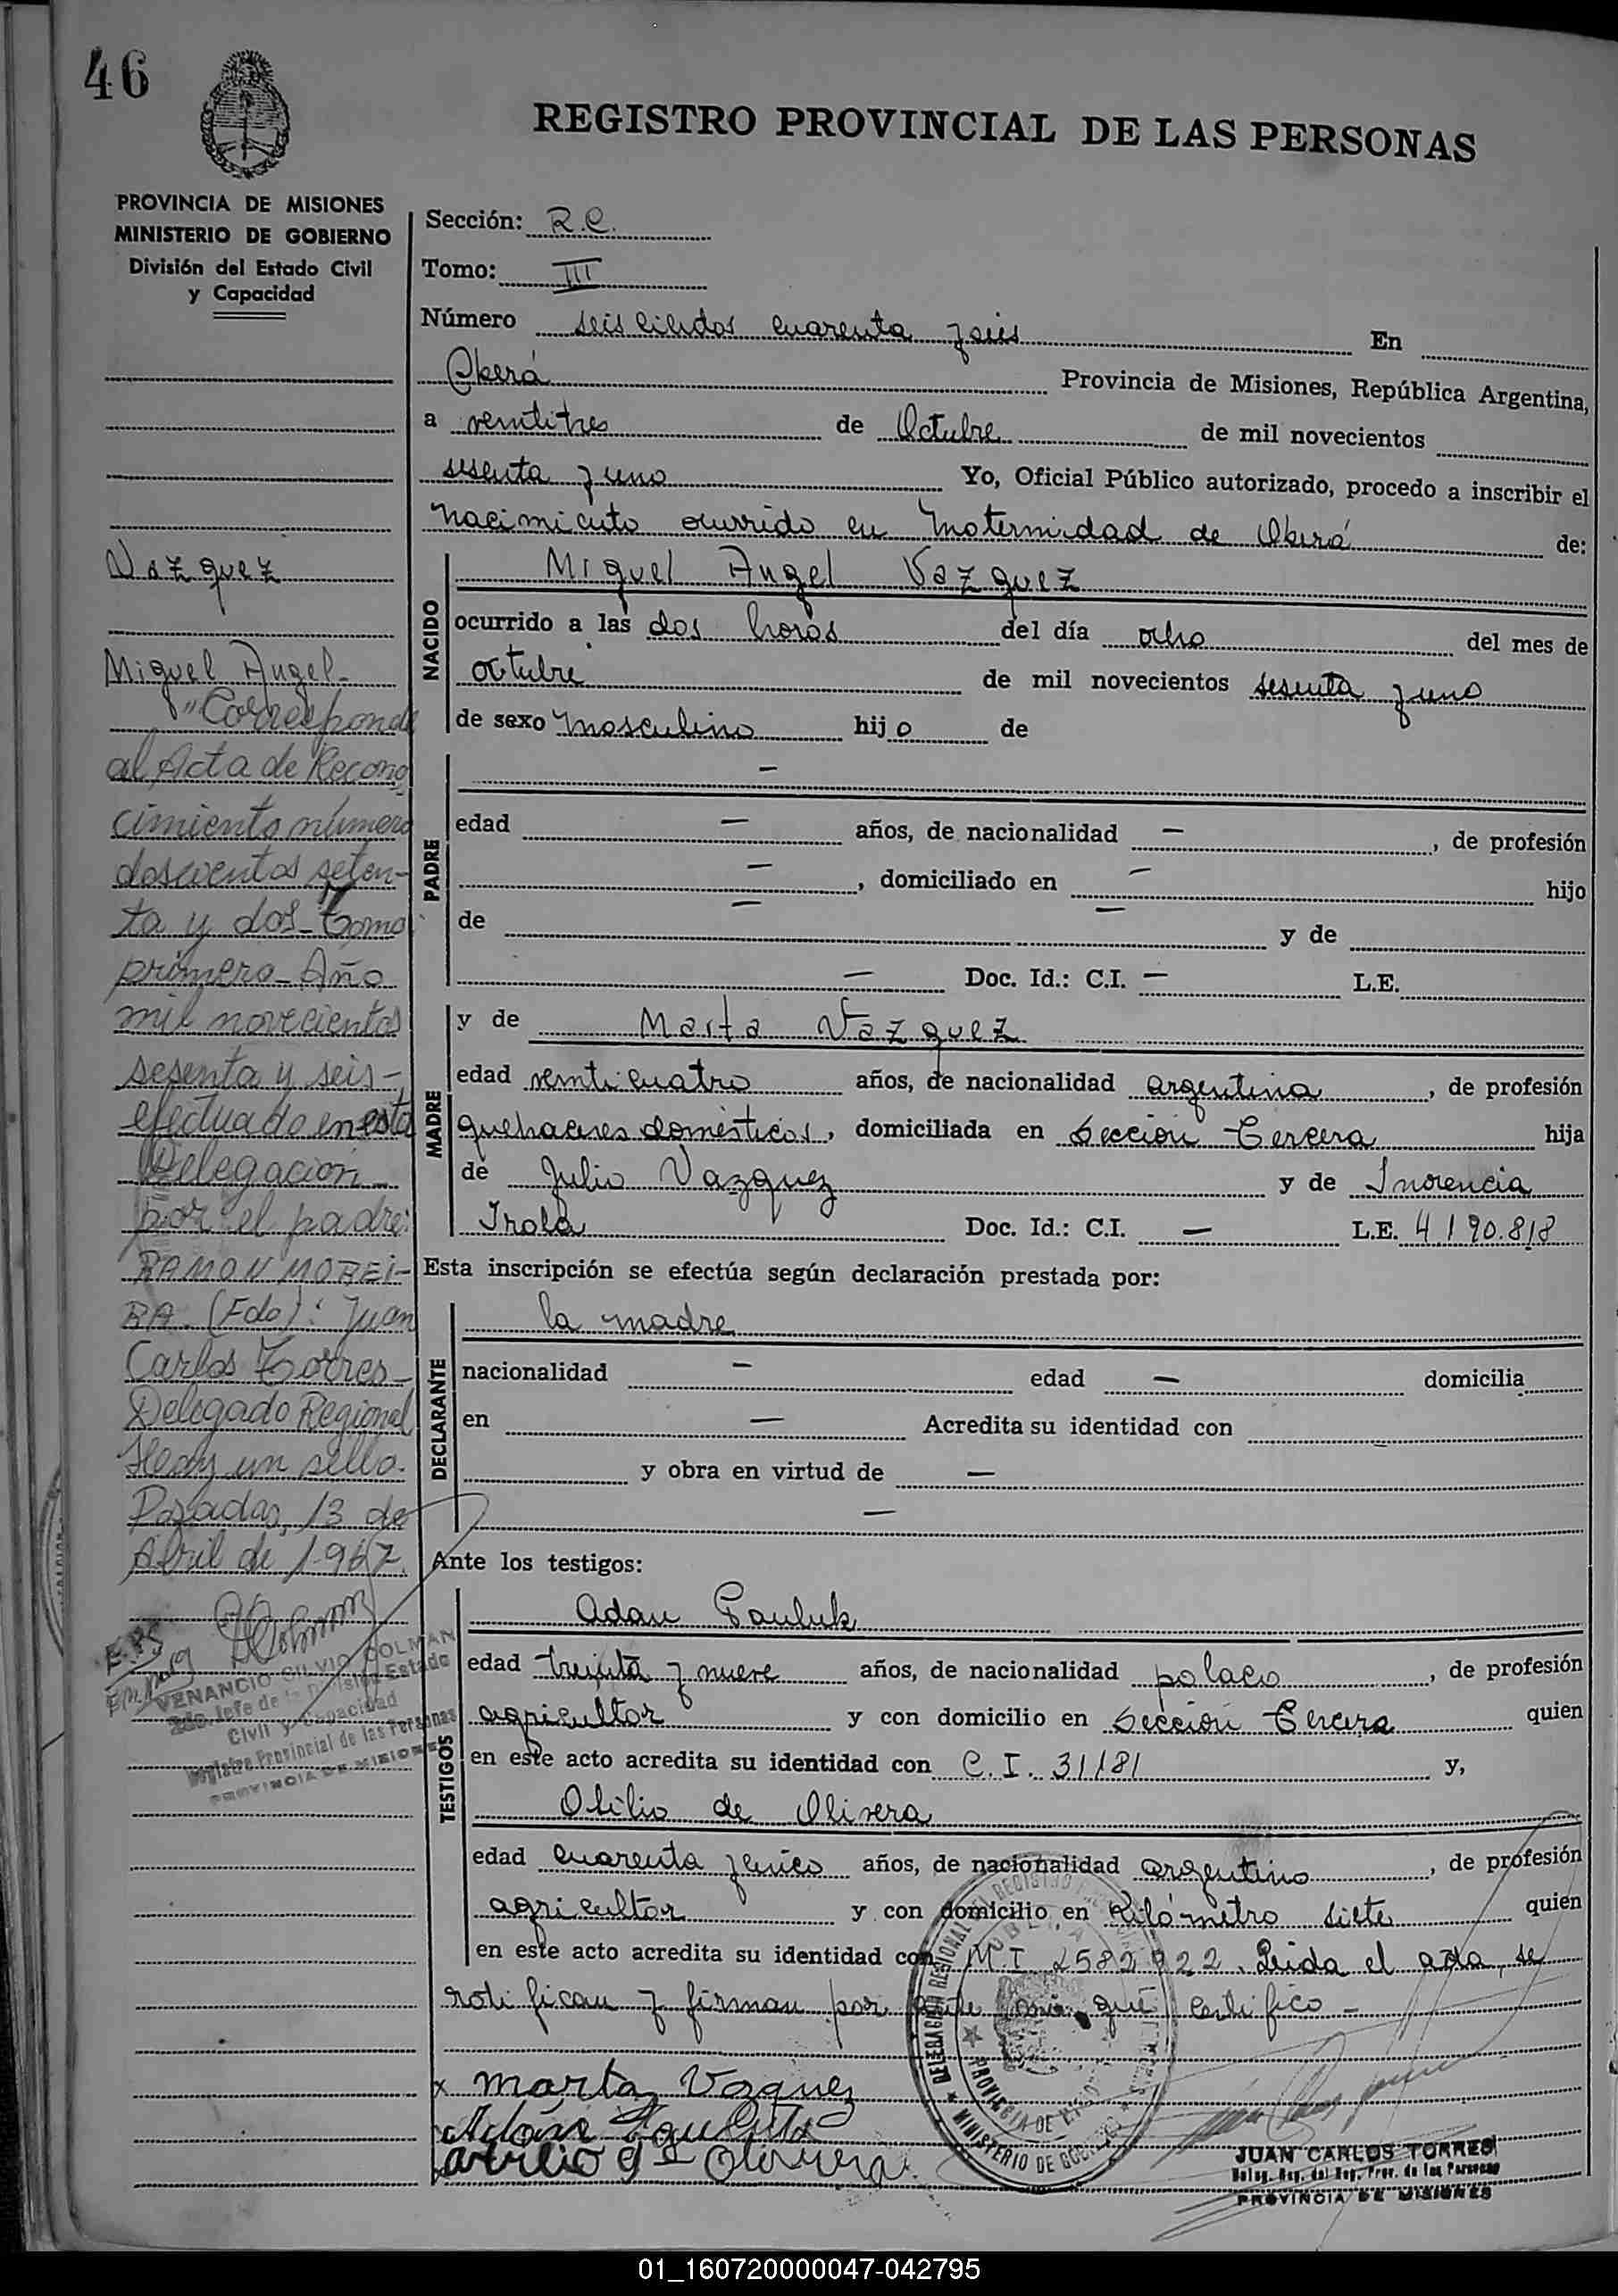 46
REGISTRO PROVINCIAL DE LAS PERSONAS
PROVINCIA DE MISIONES
MINISTERIO DE GOBIERNO
División del Estado Civil
y Capacidad
Sección: R.C.
Tomo: III
Número seiscientos cuarenta y seis En
Oberá Provincia de Misiones, República Argentina,
a veintitres de Octubre de mil novecientos
sesenta y uno Yo, Oficial Público autorizado, procedo a inscribir el
nacimiento ocurrido en Maternidad de Oberá de:
Vazquez
Miguel Angel-
"Corresponde
al Acta de Recono
cimiento número
doscientos seten-
ta y dos- Tomo
primero- Año
mil novecientos
sesenta y seis-
efectuado en esta
Delegacion-
por el padre:
RAMON MOREI-
RA. (Fdo): Juan
Carlos Torres-
Delegado Regional
Hay un sello.
Posadas, 13 de
Abril de 1967.
VENANCIO SILVIO COLMAN
2do. Jefe de la División Estado
Civil y Capacidad
Registro Provincial de las Personas
PROVINCIA DE MISIONES
NACIDO
Miguel Angel Vazquez
ocurrido a las dos horas del día ocho del mes de
octubre de mil novecientos sesenta y uno
de sexo masculino hijo de
PADRE
—
edad — años, de nacionalidad —, de profesión
—, domiciliado en — hijo
de — — y de
— Doc. Id.: C.I. — L.E.
MADRE
y de Marta Vazquez
edad veinticuatro años, de nacionalidad argentina, de profesión
quehaceres domésticos, domiciliada en Sección Tercera hija
de Julio Vazquez y de Inocencia
Irala Doc. Id.: C.I. — L.E. 4.190.818
Esta inscripción se efectúa según declaración prestada por:
DECLARANTE
la madre
nacionalidad — edad — domicilia
en — Acredita su identidad con
y obra en virtud de —
—
Ante los testigos:
TESTIGOS
Adan Pauluk
edad treinta y nueve años, de nacionalidad polaco, de profesión
agricultor y con domicilio en Sección Tercera quien
en este acto acredita su identidad con C.I. 31181 y,
Otilio de Olivera
edad cuarenta y cinco años, de nacionalidad argentino, de profesión
agricultor y con domicilio en Kilómetro siete quien
en este acto acredita su identidad con M.I. 2582922. Leida el acta, se
ratifican y firman por ante mi que certifico-
x Marta Vazquez
de Olivera
DELEGACION REGIONAL DEL REGISTRO
OBERA
PROVINCIA DE MISIONES
MINISTERIO DE GOBIERNO
JUAN CARLOS TORRES
Deleg. Reg. del Reg. Prov. de las Personas
PROVINCIA DE MISIONES
01_160720000047-042795